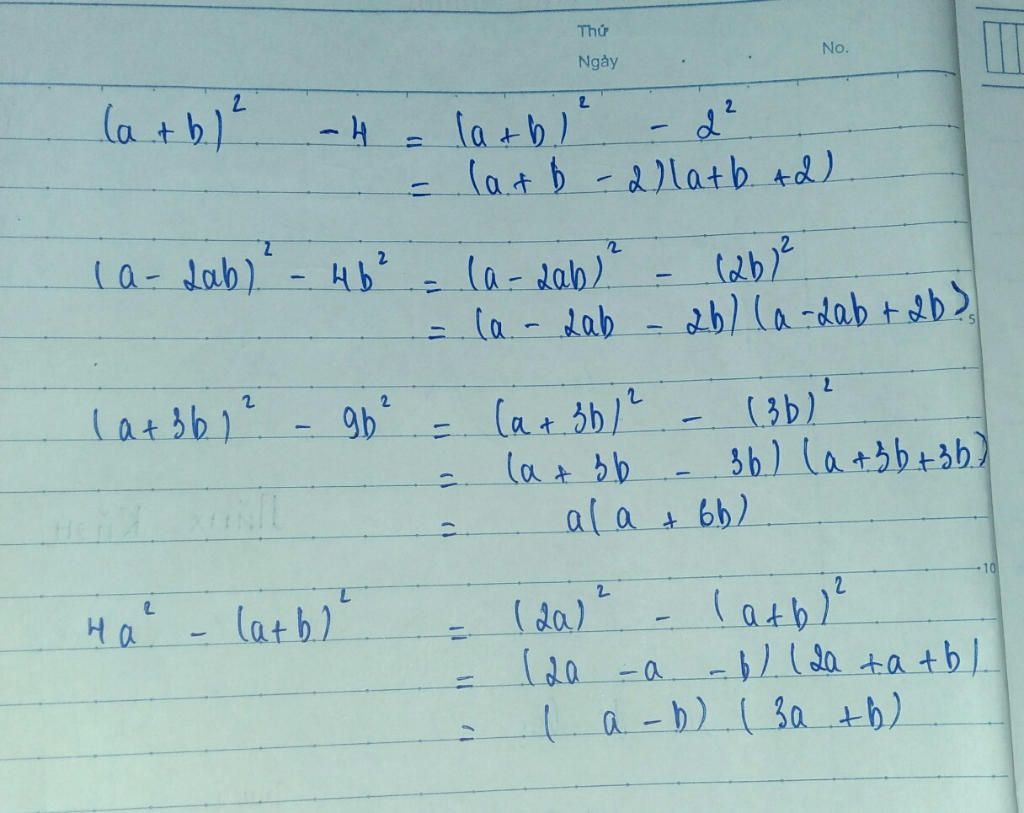 Thứ
Ngày . . No.
(a + b)² - 4 = (a + b)² - 2²
= (a + b - 2)(a + b + 2)
(a - 2ab)² - 4b² = (a - 2ab)² - (2b)²
= (a - 2ab - 2b)(a - 2ab + 2b)
5
(a + 3b)² - 9b² = (a + 3b)² - (3b)²
= (a + 3b - 3b)(a + 3b + 3b)
= a(a + 6b)
10
4a² - (a + b)² = (2a)² - (a + b)²
= (2a - a - b)(2a + a + b)
= (a - b)(3a + b)